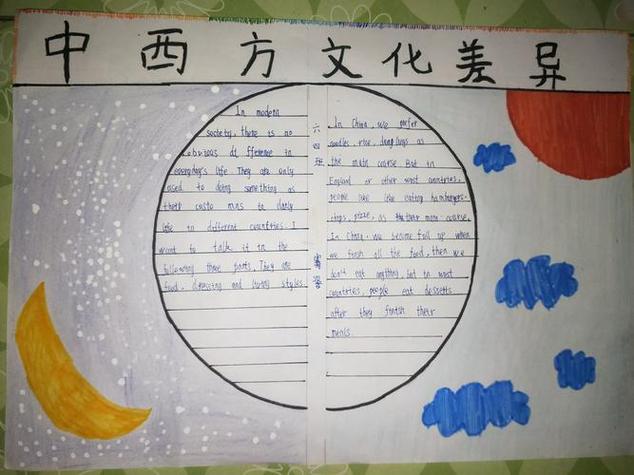 中西方文化差异
In modern
society, there is no
obvious difference in
everyone's life They are only
used to doing something as
their customs to daily
life in different countries. I
want to talk it in the
following three parts. They are
food, dressing and living styles.
六四班
In China, we prefer
noodles, rice, dumplings as
the main coarse But in
England or other west countries,
people like eating hamburgers,
chips, pizze, as their main coarse.
In China, we become full up when
we finish all the food, then we
don't eat anything, but in west
countries, people eat dessetts
after they finish their
meals